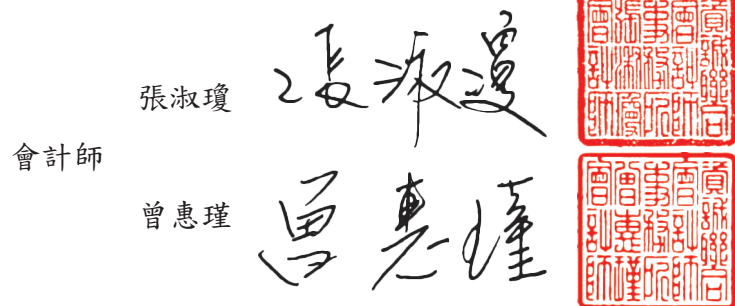 張淑瓊 張淑瓊
會計師
曾惠瑾 曾惠瑾
資誠聯合
會計師
事務所
張淑瓊
會計師
資誠聯合
會計師
事務所
曾惠瑾
會計師